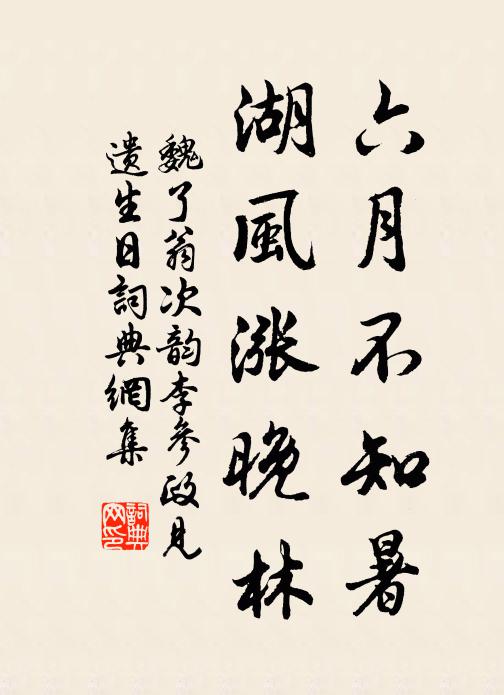 六月不知暑
湖風漲晚林
魏了翁次韵李參政見
遺生日詞典網集
詞典
网印